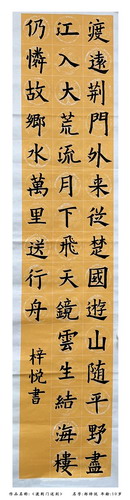 渡遠荊門外来從楚國遊山隨平野盡
江入大荒流月下飛天鏡雲生結海樓
仍憐故鄉水萬里送行舟
梓悅書
作品名称:《渡荆门送别》 名字:郑梓悦 年龄: